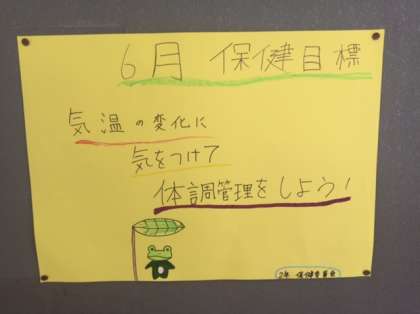 6月 保健目標
気温の変化に
気をつけて
体調管理をしよう!
2年 保健委員会